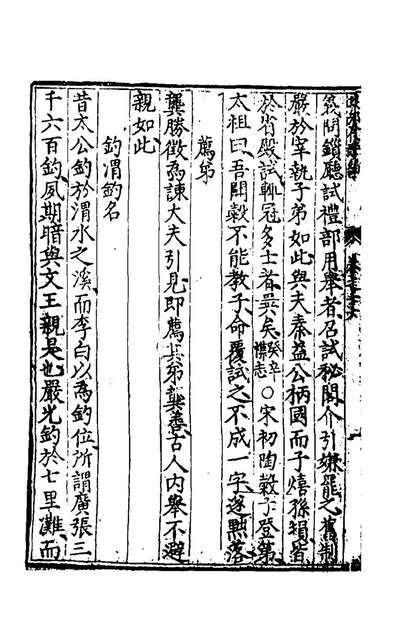 鎖廳試禮部用舉者召試秘閣介引嫌罷之舊制
嚴於宰執子弟如此與夫秦益公柄國而子熺孫塤皆
於省殿試輒冠多士者異矣癸辛雜志○宋初陶穀子登第
太祖曰吾聞穀不能教子命覆試之不成一字遂黜落
薦弟
龔勝徵為諫大夫引見即薦其弟龔舍古人內舉不避
親如此
釣渭釣名
昔太公釣於渭水之溪而李白以為釣位所謂廣張三
千六百釣夙期暗與文王親是也嚴光釣於七里灘而